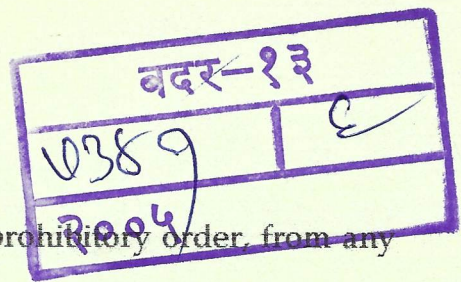 वदर-१३
७३४१ ६
२००५
prohibitory order, from any